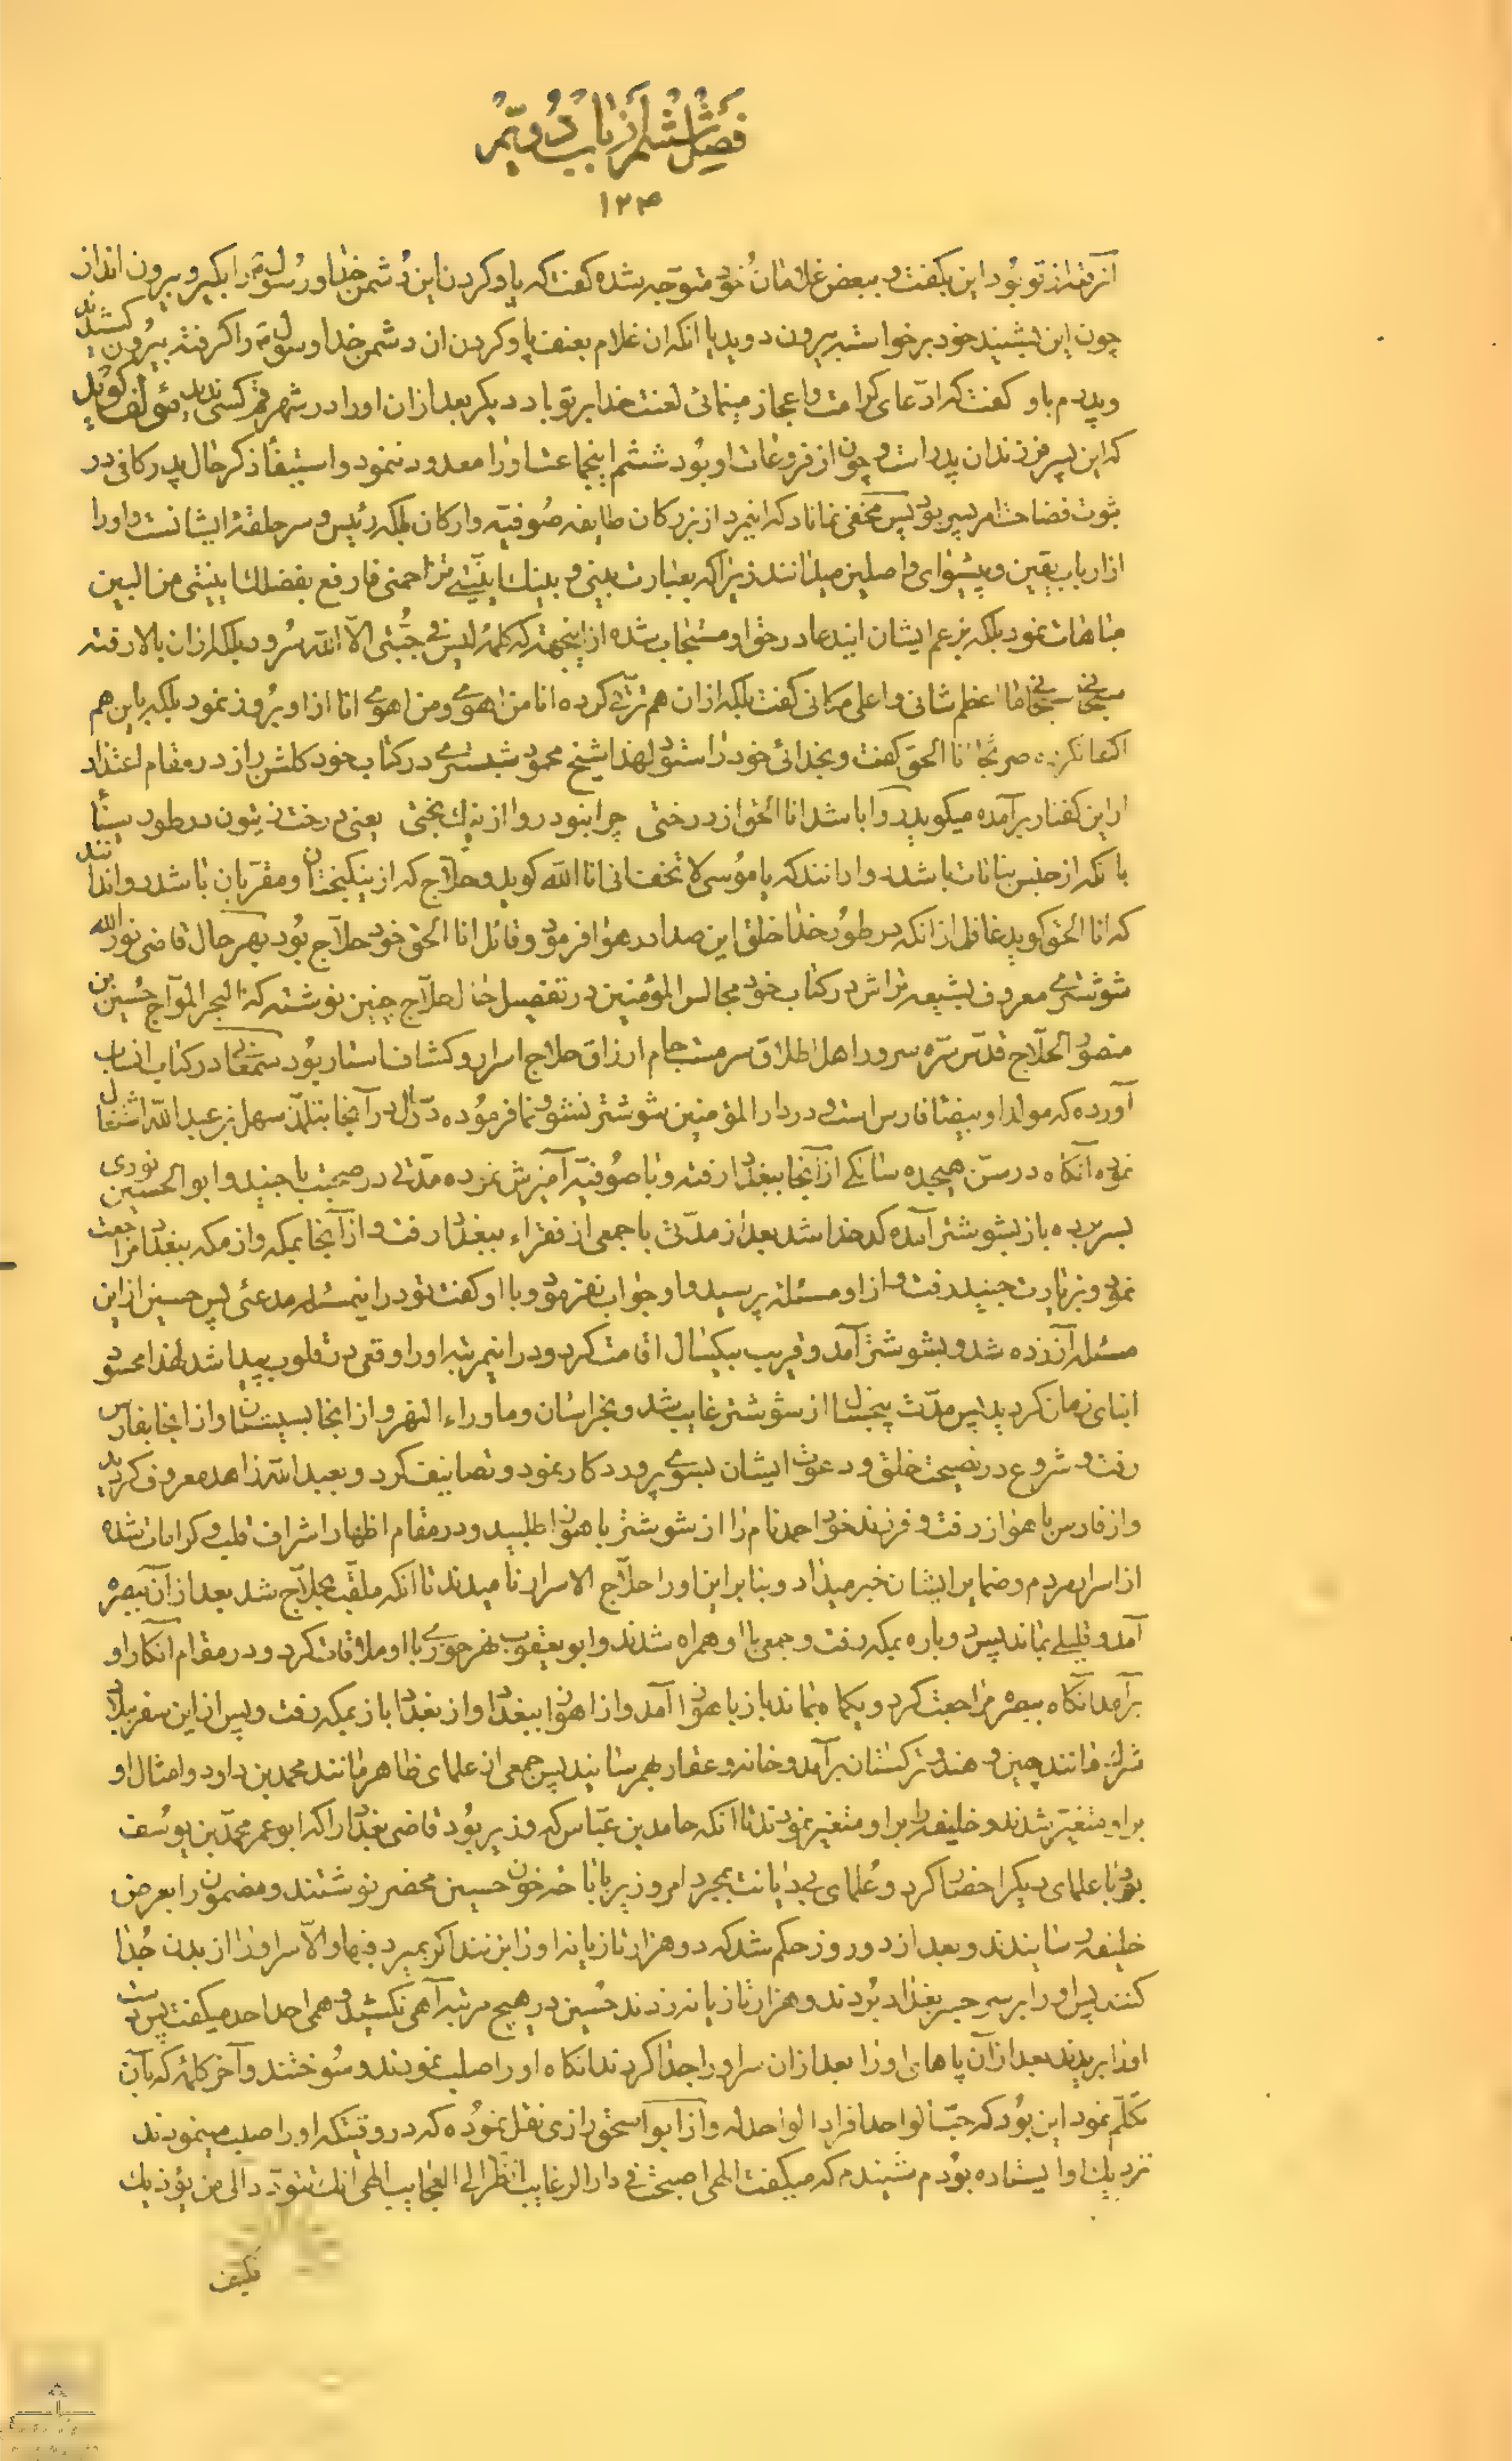 فصل ششم از باب دویم
۱۲۴
آنرقه از تو بود این بگفت و ببعض غلامان خود متوجه شده گفت که پا و گردن این دشمن خدا و رسول را بگیر و بیرون انداز
چون این بشنید خود برخواسته بیرون دوید با آنکه ان غلام بعنف پا و گردن ان دشمن خدا و رسول را گرفته بیرون کشید
و پدرم باو گفت که ادعای کرامت و اعجاز مینمائی لعنت خدا بر تو باد دیگر بعد از ان او را در شهر قم کسی ندید مؤلف گوید
که این پسر فرزندان پدر است و چون از فروعات او بود ششم اینجماعت او را معدود ننمود و استیفاء ذکر حال پدر کافی در
ثبوت فضاحت امر پسر بود پس مخفی نماناد که اینمرد از بزرگان طایفه صوفیه و ارکان بلکه رئیس و سر حلقه ایشانست و او را
از ارباب یقین و پیشوای واصلین میدانند زیرا که بعبارت بینی و بینك اِنّیّتی تزاحمنی فارفع بفضلك اِنّیّتی من البین
مباهات نمود بلکه بزعم ایشان ایندعا در حق او مستجاب شده از اینجهة که کلمه لیس فی جبّتی الّا الله سرود بلکه از ان بالا رفته
سبحانی سبحانی ما اعظم شانی و اعلی مکانی گفت بلکه از ان هم ترقی کرده انا من اهوی و من اهوی انا از او بروز نمود بلکه باین هم
اکتفا نکرده صریحا انا الحق گفت و بخدائی خود را ستود لهذا شیخ محمود شبستری در کتاب خود گلشن راز در مقام اعتذار
از این گفتار برآمده میگوید روا باشد انا الحق از درختی چرا نبود روا از نیك بختی یعنی درخت زیتون در طور سینا
با آنکه از جنس نباتات باشد روا دانند که با موسی لا تخف انی انا الله گوید و حلاج که از نیکبختان و مقربان باشد روا ندانند
که انا الحق گوید غافل از انکه در طور خدا خلق این صدا در هوا فرمود و قائل انا الحق خود حلاج بود بهر حال قاضی نور الله
شوشتری معروف بشیعه تراش در کتاب خود مجالس المؤمنین در تفصیل حال حلاج چنین نوشته که البحر الموّاج حسین بن
منصور الحلاج قدّس سرّه سرور اهل اطلاق سرمست جام ارزاق حلاج اسرار و کشاف استار بود سمعانی در کتاب انساب
آورده که مولد او بیضاء فارس است و در دار المؤمنین شوشتر نشو و نما فرموده دو سال در آنجا بتلمّذ سهل بن عبد الله اشتغال
نموده آنگاه در سنّ هیجده سالگی از آنجا ببغداد رفته و با صوفیه آمیزش نموده مدّتی در صحبت با جنید و ابو الحسین نوری
بسر برده باز بشوشتر آمده کدخدا شد بعد از مدّتی با جمعی از فقراء ببغداد رفت و از آنجا بمکه و از مکه ببغداد مراجعت
نمود و بزیارت جنید رفت و از او مسئله پرسید و او جواب نفرمود و با او گفت تو در اینمسئله مدعئی پس حسین از این
مسئله آزرده شد و بشوشتر آمد و قریب بیکسال اقامت کرد و در اینمرتبه او را وقعی در قلوب پیدا شد لهذا محسود
ابنای زمان گردید پس مدّت پنجسال از شوشتر غایب شد و بخراسان و ماوراء النهر و از انجا بسیستان و از انجا بفارس
رفت و شروع در نصیحت خلق و دعوت ایشان بسوی پروردگار نمود و تصانیف کرد و بعبد الله زاهد معروف گردید
و از فارس باهواز رفت و فرزند خود احمد نام را از شوشتر باهواز طلبید و در مقام اظهار اشراف قلب و کرامات شده
از اسرار مردم و ضمایر ایشان خبر میداد و بنابراین او را حلاج الاسرار نامیدند تا انکه ملقب بحلاج شد بعد از آن ببصره
آمد و قلیلی بماند پس دوباره بمکه رفت و جمعی با او همراه شدند و ابو یعقوب نهرجوری با او ملاقات کرد و در مقام انکار او
برآمد آنگاه ببصره مراجعت کرد و یکماه بماند باز باهواز آمد و از اهواز ببغداد و از بغداد باز بمکه رفت و پس از این سفر ببلاد
شرك مانند چین و هند و ترکستان برآمد و خانه و عقار بهم رسانید پس جمعی از علمای ظاهر مانند محمد بن داود و امثال او
بر او متغیّر شدند و خلیفه را بر او متغیر نمودند تا انکه حامد بن عباس که وزیر بود قاضی بغداد را که ابو عمر محمّد بن یوسف
بود با علمای دیگر احضار کرد و علمای بی دیانت بمجرد امر وزیر باباحه خون حسین محضر نوشتند و مضمون را بعرض
خلیفه رسانیدند و بعد از دو روز حکم شد که دو هزار تازیانه او را بزنند اگر بمیرد فبها و الّا سر او را از بدن جدا
کنند پس او را بر سر جسر بغداد بردند و هزار تازیانه زدند حسین در هیچ مرتبه آهی نکشید و همی احد احد میگفت پس دست
او را بریدند بعد از آن پاهای او را بعد از ان سر او را جدا کردند انگاه او را صلب نمودند و سوختند و آخر کلمه که بآن
تکلم نمود این بود که حسب الواحد افراد الواحد له و از ابو اسحق رازی نقل نموده که در وقتیکه او را صلب مینمودند
نزدیك او ایستاده بودم شنیدم که میگفت الهی اصبحت فی دار الرغایب انظر الی العجایب الهی انك تتودد الی من یؤذیك
فکیف